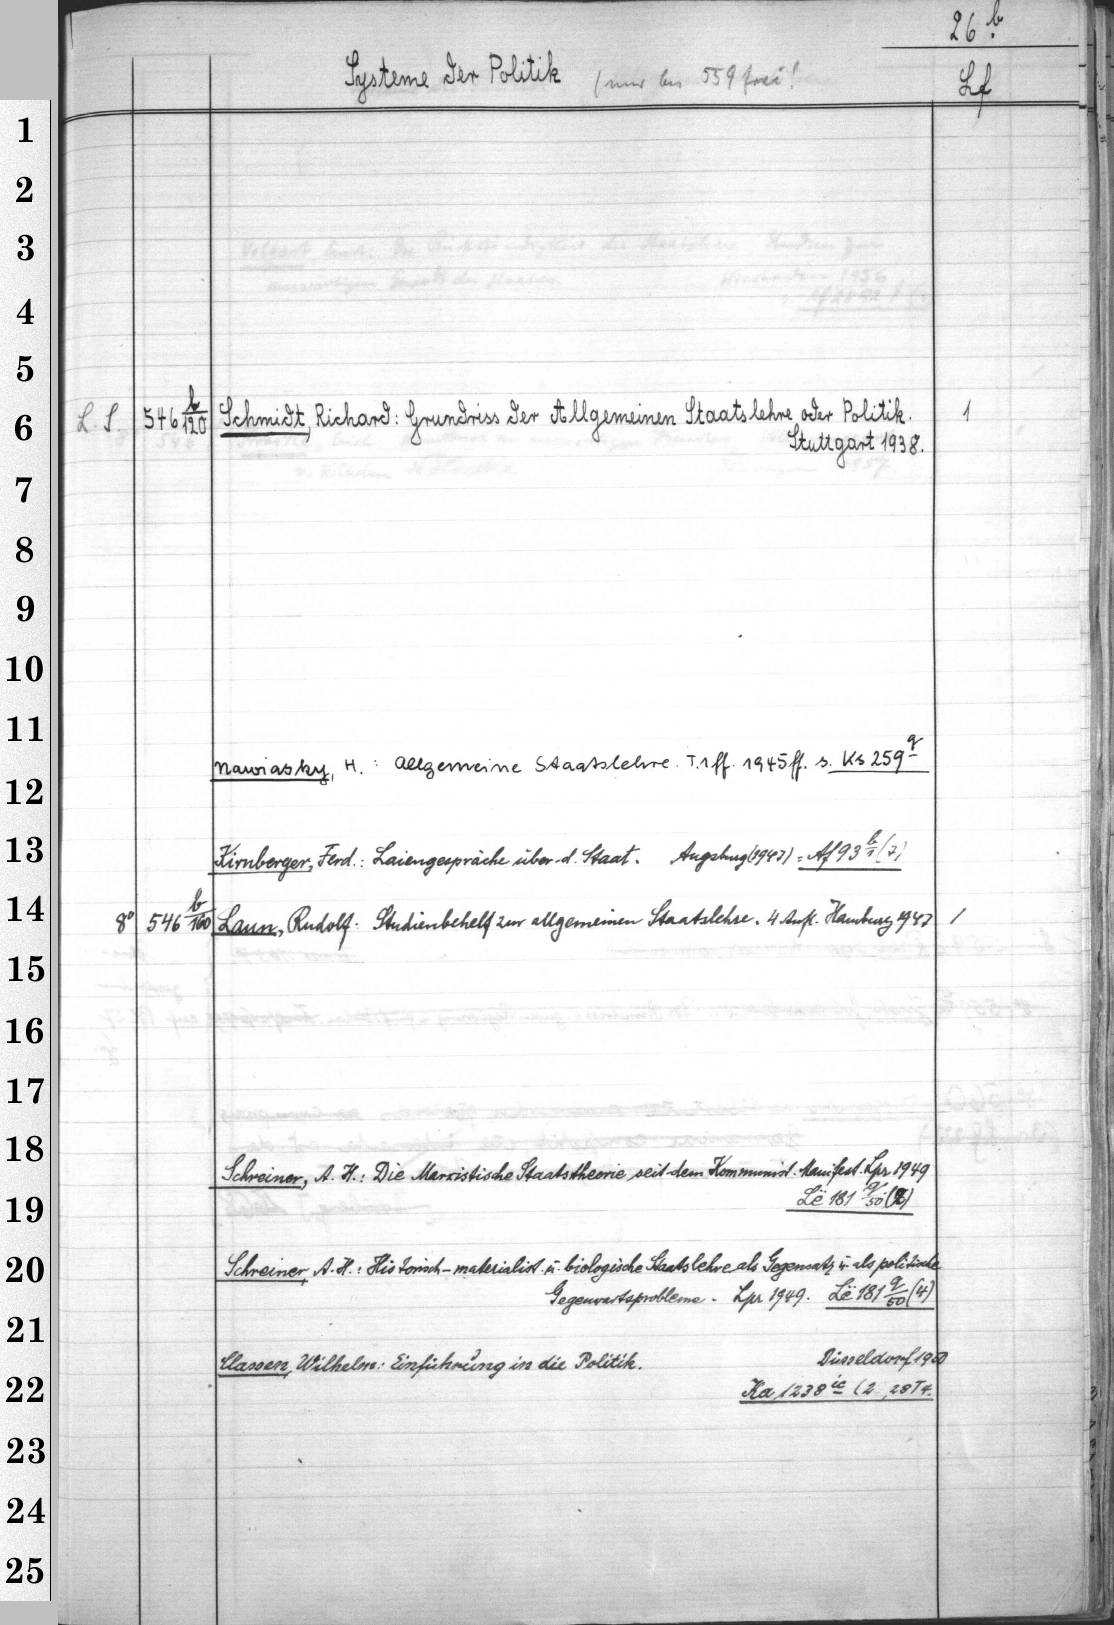 26 b.
Systeme der Politik (nur bis 559 frei! Lf
1
2
3
4
5
6 L. S. 546 b/120 Schmidt, Richard: Grundriss der Allgemeinen Staatslehre oder Politik. 1
Stuttgart 1938.
7
8
9
10
11
Nawiasky, H.: Allgemeine Staatslehre. T. 1 ff. 1945 ff. s. Ks 259 q
12
13 Kirnberger, Ferd.: Laiengespräche über d. Staat. Augsburg (1947) = Af 93 b/1 (7)
14 8° 546 b/160 Laun, Rudolf. Studienbehelf zur allgemeinen Staatslehre. 4 Aufl. Hamburg 1947 1
15
16
17
18 Schreiner, A. H.: Die Marxistische Staatstheorie seit dem Kommunist. Manifest. Lpz. 1949
19 Lë 181 q/50 (2)
20 Schreiner, A. H.: Historisch-materialist. u. biologische Staatslehre als Gegensatz u. als politische
Gegenwartsprobleme. Lpz. 1949. Lë 181 q/50 (4)
21
Classen, Wilhelm: Einführung in die Politik. Düsseldorf 1950
22 Ka 1238 ic (2
23
24
25